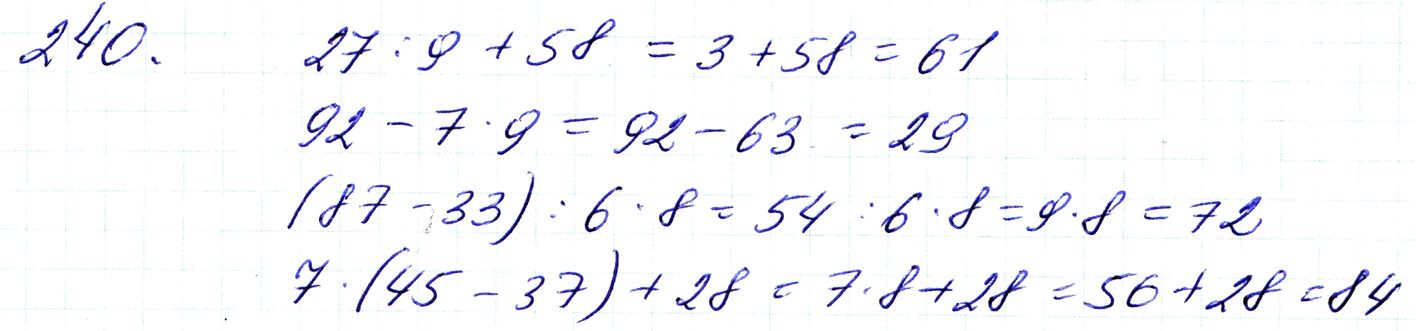 240. 27 : 9 + 58 = 3 + 58 = 61
92 - 7 · 9 = 92 - 63 = 29
(87 - 33) : 6 · 8 = 54 : 6 · 8 = 9 · 8 = 72
7 · (45 - 37) + 28 = 7 · 8 + 28 = 56 + 28 = 84